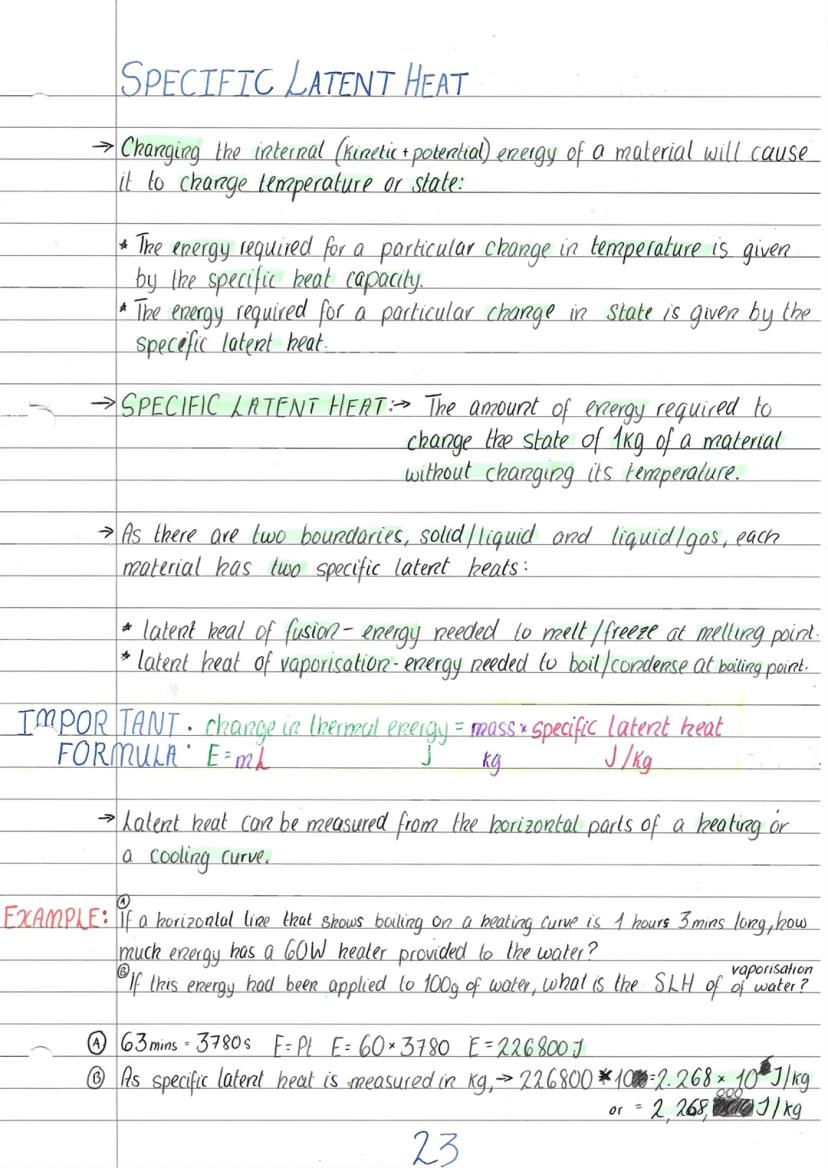 SPECIFIC LATENT HEAT
→ Changing the internal (kinetic + potential) energy of a material will cause
it to change temperature or state:
* The energy required for a particular change in temperature is given
by the specific heat capacity.
* The energy required for a particular change in state is given by the
specefic latent heat.
→ SPECIFIC LATENT HEAT:→ The amount of energy required to
change the state of 1kg of a material
without changing its temperature.
→ As there are two boundaries, solid/liquid and liquid/gas, each
material has two specific latent heats:
* latent heat of fusion - energy needed to melt/freeze at melting point.
* latent heat of vaporisation - energy needed to boil/condense at boiling point.
IMPORTANT. change in thermal energy = mass × specific latent heat
FORMULA: E = mL J kg J/kg
→ Latent heat can be measured from the horizontal parts of a heating or
a cooling curve.
EXAMPLE: Ⓐ If a horizontal line that shows boiling on a heating curve is 1 hours 3mins long, how
much energy has a 60W heater provided to the water?
Ⓑ If this energy had been applied to 100g of water, what is the SLH of vaporisation of water?
Ⓐ 63mins = 3780s E=Pt E= 60 × 3780 E = 226800J
Ⓑ As specific latent heat is measured in kg, → 226800 × 10 = 2.268 × 10 J/kg
or = 2,268,000 J/kg
23